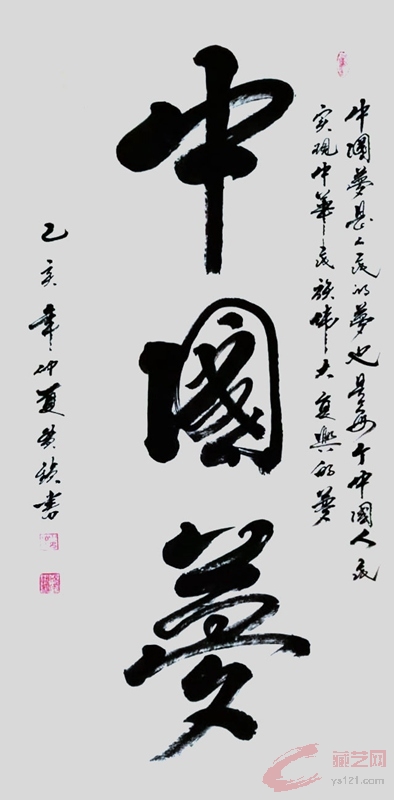 中國夢是人民的夢也是每个中國人民
实現中華民族偉大復興的夢
中國夢
己亥年仲夏黄書
藏艺网
ys121.com